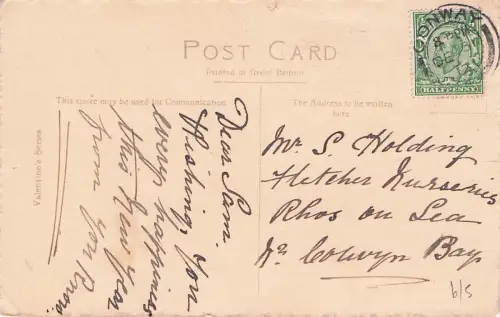 POST CARD
Printed in Great Britain
This space may be used for Communication
The Address to be written
here.
Valentine's Series
CONWAY
8 PM
DE
HALFPENNY
Dear Sam.
Wishing You
every happiness
this New Year
from You Know.
Mr S. Holding
Fletcher Nurseries
Rhos on Sea
Nr Colwyn Bay
6/5